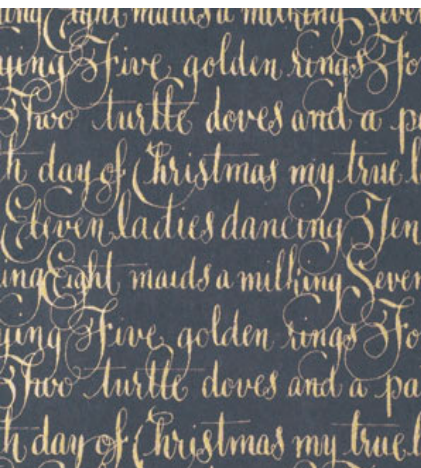 ing Eight maids a milking Seven
ying Five golden rings Fo
Two turtle doves and a p
h day of Christmas my true l
Eleven ladies dancing Ten
ing Eight maids a milking Seven
ying Five golden rings Fo
Two turtle doves and a pa
h day of Christmas my true l